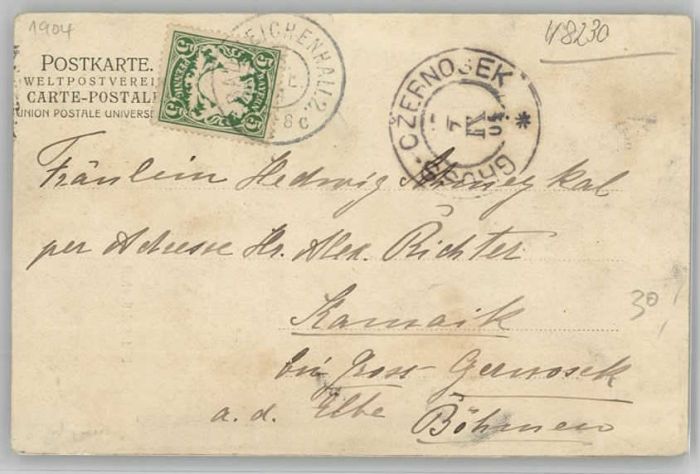 1904
48230
POSTKARTE.
WELTPOSTVEREI
CARTE-POSTAL
UNION POSTALE UNIVERSE
5 5
5 5
EICHENHALL 2.
8 C
GROSS-CZERNOSEK *
7
IX
04
Fräulein Hedwig
per Adresse Hr. Alex. Richter
Kamaik
30
bei Gross Czernosek
a. d. Elbe Böhmen